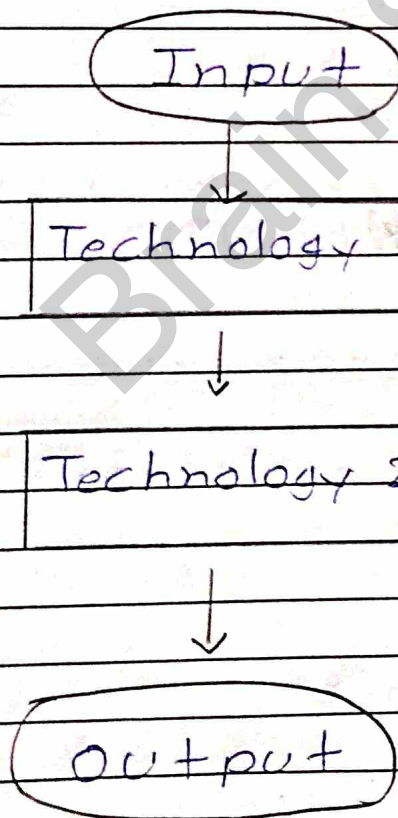 Input
Technology
Technology 2
Output